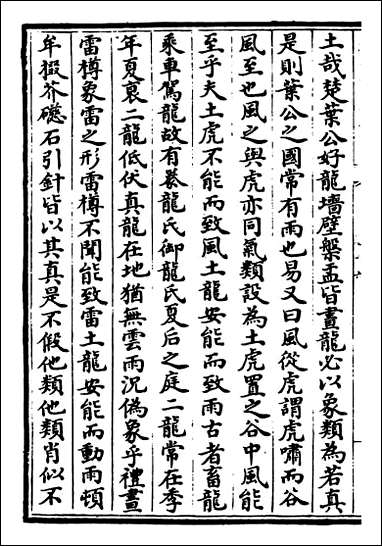 土哉楚葉公好龍墻壁槃盂皆畫龍必以象類為若真
是則葉公之國常有雨也易又曰風從虎謂虎嘯而谷
風至也風之與虎亦同氣類設為土虎置之谷中風能
至乎夫土虎不能而致風土龍安能而致雨古者畜龍
乘車駕龍故有豢龍氏御龍氏夏后之庭二龍常在季
年夏衰二龍低伏真龍在地猶無雲雨況偽象乎禮畫
雷樽象雷之形雷樽不聞能致雷土龍安能而動雨頓
牟掇芥磁石引針皆以其真是不假他類他類肖似不